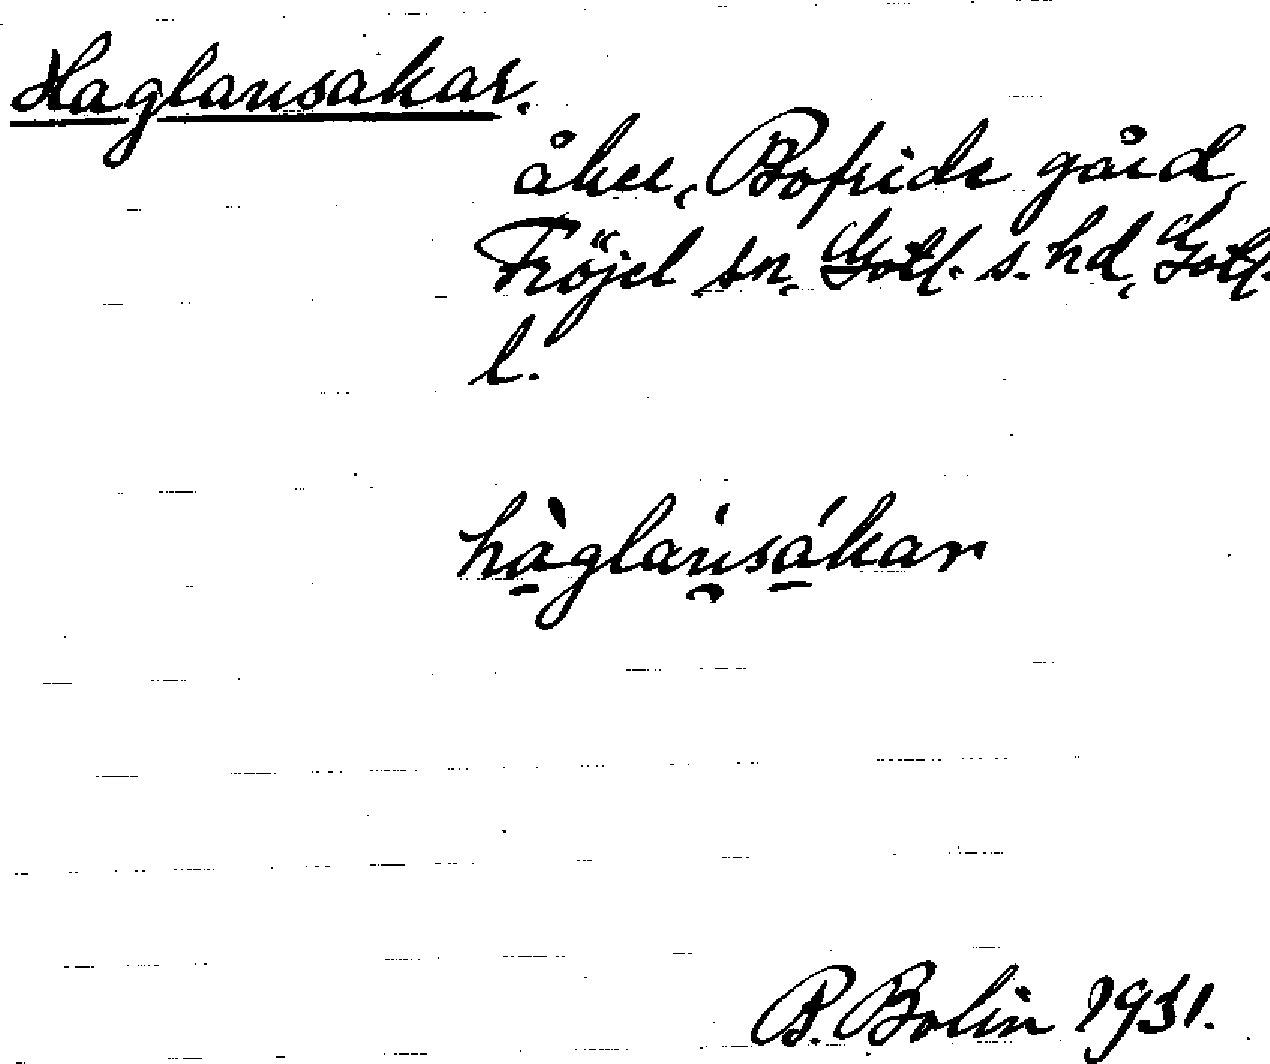 Haglausakar.
åker, Bofride gård,
Fröjel sn, Gotl. s. hd, Gotl.
l.
hàglau̯sákar
B. Bolin 1931.